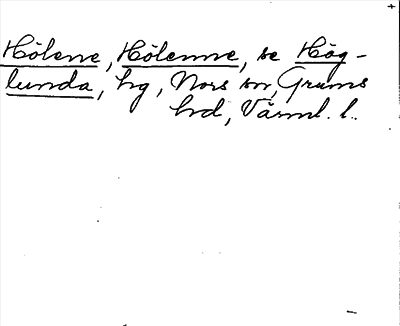 Hölene, Hölenne, se Hög-
lunda, hg, Nors sn, Grums
hd, Värml. l.